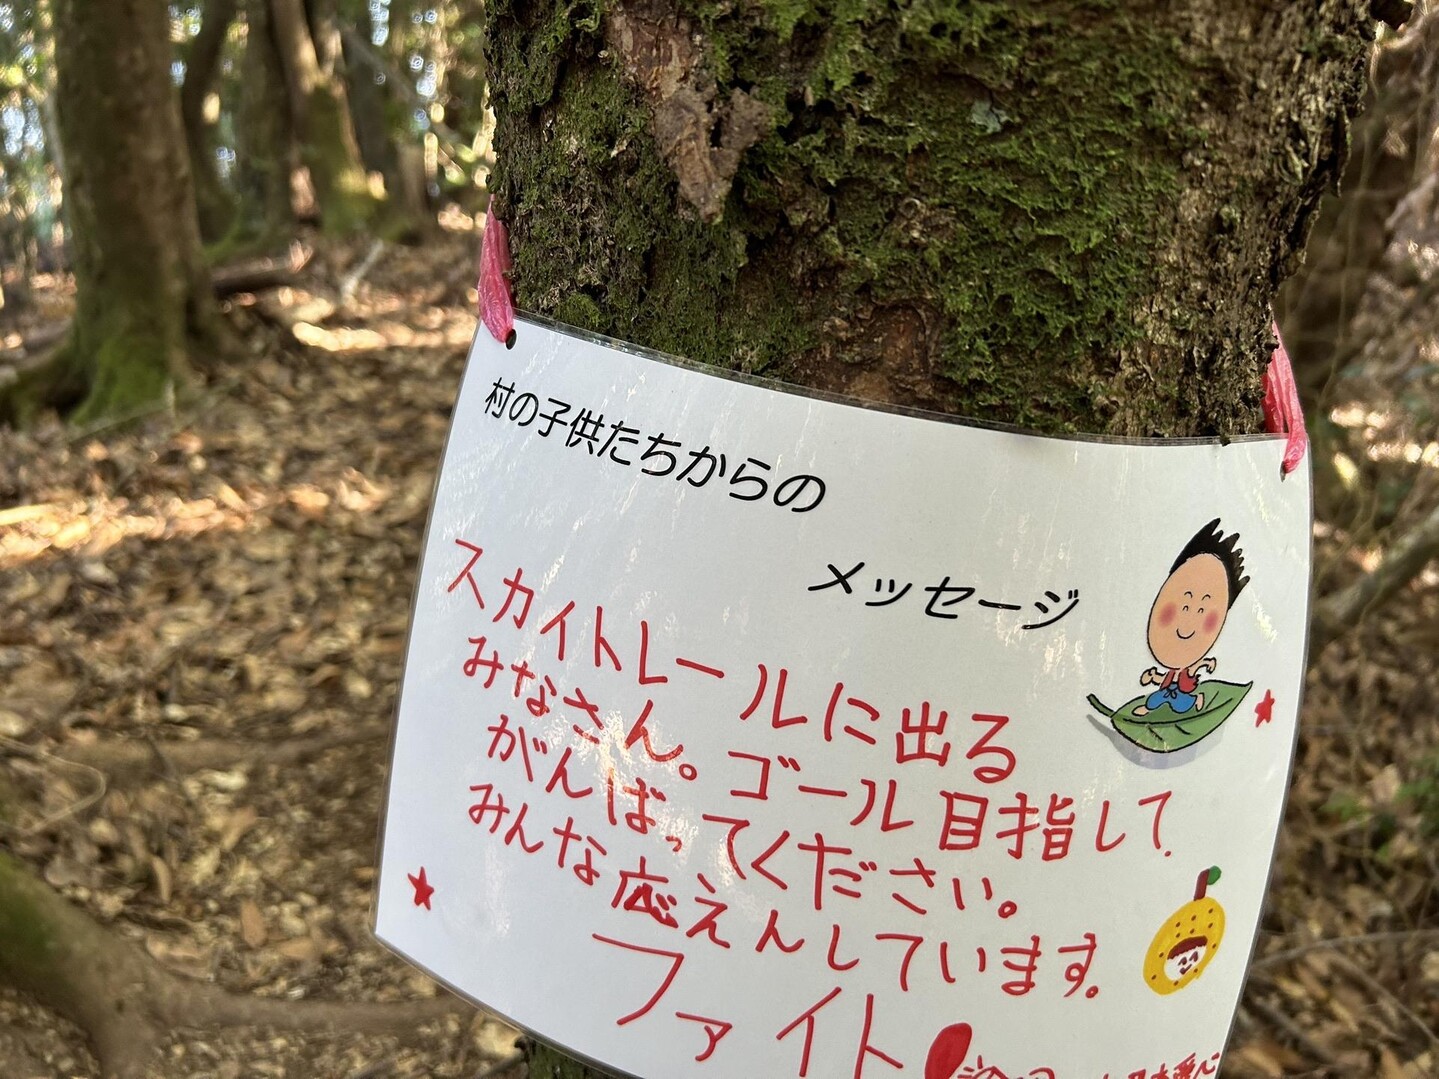 村の子供たちからの
メッセージ
スカイトレールに出る
みなさん。ゴール目指して
がんばってください。
みんな応えんしています。
ファイト